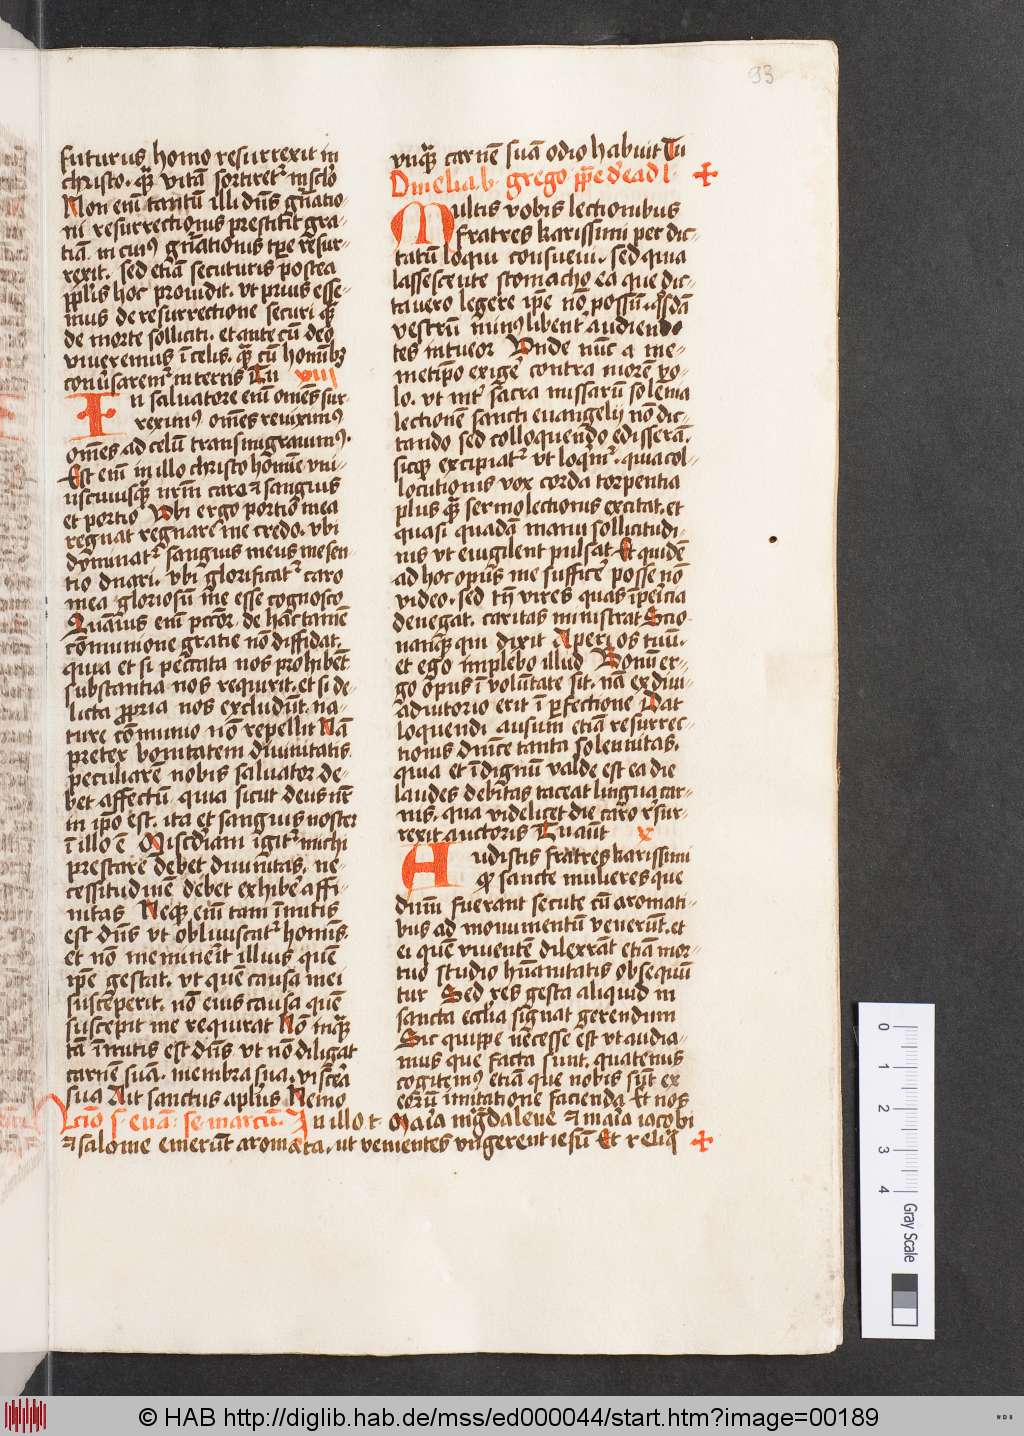 93
futurus homo resurrexit in
christo. qꝫ vitā sortiretᷣ in sclo
Non enī tantū illi dn̄s gn̄atio-
ni resurrectionis prestitit gra-
tiā. in cuiꝰ gn̄ationis tꝑe resur-
rexit. sed etiā secuturis postea
pplis hoc prouidit. vt prius esse-
mus de resurrectione securi qꝫ
de morte solliciti. et ante cū deo
viueremus ī celis. qꝫ cū homībꝫ
conūsaremᷣ in terris Tu viii
In saluatore enī om̄es sur-
reximꝰ om̄es reuiximꝰ
om̄es ad celū transmigrauimꝰ.
Est enī in illo christo homīe vni-
uscuiusqꝫ nr̄m caro ⁊ sanguis
et portio Ubi ergo portio mea
regnat regnare me credo. vbi
dominatᷣ sanguis meus me sen-
tio dn̄ari. vbi glorificatᷣ caro
mea gloriosū me esse cognosco
Quāuis enī pctōr. de hac tamē
cōmunione gratie nō diffidat.
quia et si peccata nos prohibēt
substantia nos requirit. et si de-
licta ꝓpria nos excludūt. na-
ture cōmunio nō repellit Nā
preter bonitatem diuinitatis
peculiarē nobis saluator de-
bet affectū. quia sicut deus nr̄
in ip̄o est. ita et sanguis noster
ī illo ē Miscdiam īgitᷣ michi
prestare debet diuinitas. ne-
cessitudinē debet exhibe affi-
nitas Neqꝫ enī tam īmitis
est dn̄s vt obliuiscatᷣ homīs.
et nō meminerit illius quē
ip̄e gestat. vt quē causa mei
susceperit. nō eius causa quē
suscepit me requirat Nō inqꝫ
tā īmitis est dn̄s vt nō diligat
carnē suā. membra sua. viscera
sua Ait sanctus apl̄us Nemo
vnqꝫ carnē suā odio habuit Tu
Omelia. b. grego ppe d'eadl.
Multis vobis lectionibus
fratres karissimi per dic-
tatū loqui consueui. sed quia
lassescente stomacho ea que dic-
tauero legere ip̄e nō possum. qsdā
vestrū minꝰ libentᷣ audien
tes intueor Unde nūc a me-
metip̄o exige contra morē po-
lo. vt intᷣ sacra missarū solēnia
lectionē sancti euangelij nō dic-
tando sed colloquendo edisserā.
sicqꝫ excipiatᷣ vt loqmᷣ. quia col-
locutionis vox corda torpentia
plus qꝫ sermo lectionis excitat. et
quasi quadā manu sollicitudi-
nis vt euigilent pulsat Et quidē
ad hoc opus me suffice posse nō
video. sed tn̄ vires quas īpericia
denegat. caritas ministrat Scio
nanqꝫ qui dixit Aperi os tuū.
et ego implebo illud Bonū er-
go opus ī volūtate sit. nā ex diui-
adiutorio erit ī ꝑfectione Dat
loquendi ausum etiā resurrec-
tionis dn̄ice tanta solennitas.
quia et īdignū valde est ea die
laudes debitas taceat lingua car-
nis. qua videlicet die caro resur-
rexit auctoris Tu aūt x
Audistis fratres karissimi
qꝫ sancte mulieres que
dn̄m fuerant secute cū aromati-
bus ad monumentū venerūt. et
ei quē viuentē dilexerāt etiā mor-
tuo studio hūanitatis obsequū
tur Sed res gesta aliquid in
sancta eccl'ia signat gerendum
Sic quippe necesse est vt audia-
mus que facta sunt. quatenus
cogitemꝰ etiā que nobis sūt ex
eorū imitatione facienda Et nos
Lcio s. euā. se. marcū. In illo t. Maia mgdalene ⁊ maia iacobi
⁊ salome emerūt aromata. ut venientes vngerent iesū Et reliq
0 1 2 3 4
Gray Scale
© HAB http://diglib.hab.de/mss/ed000044/start.htm?image=00189